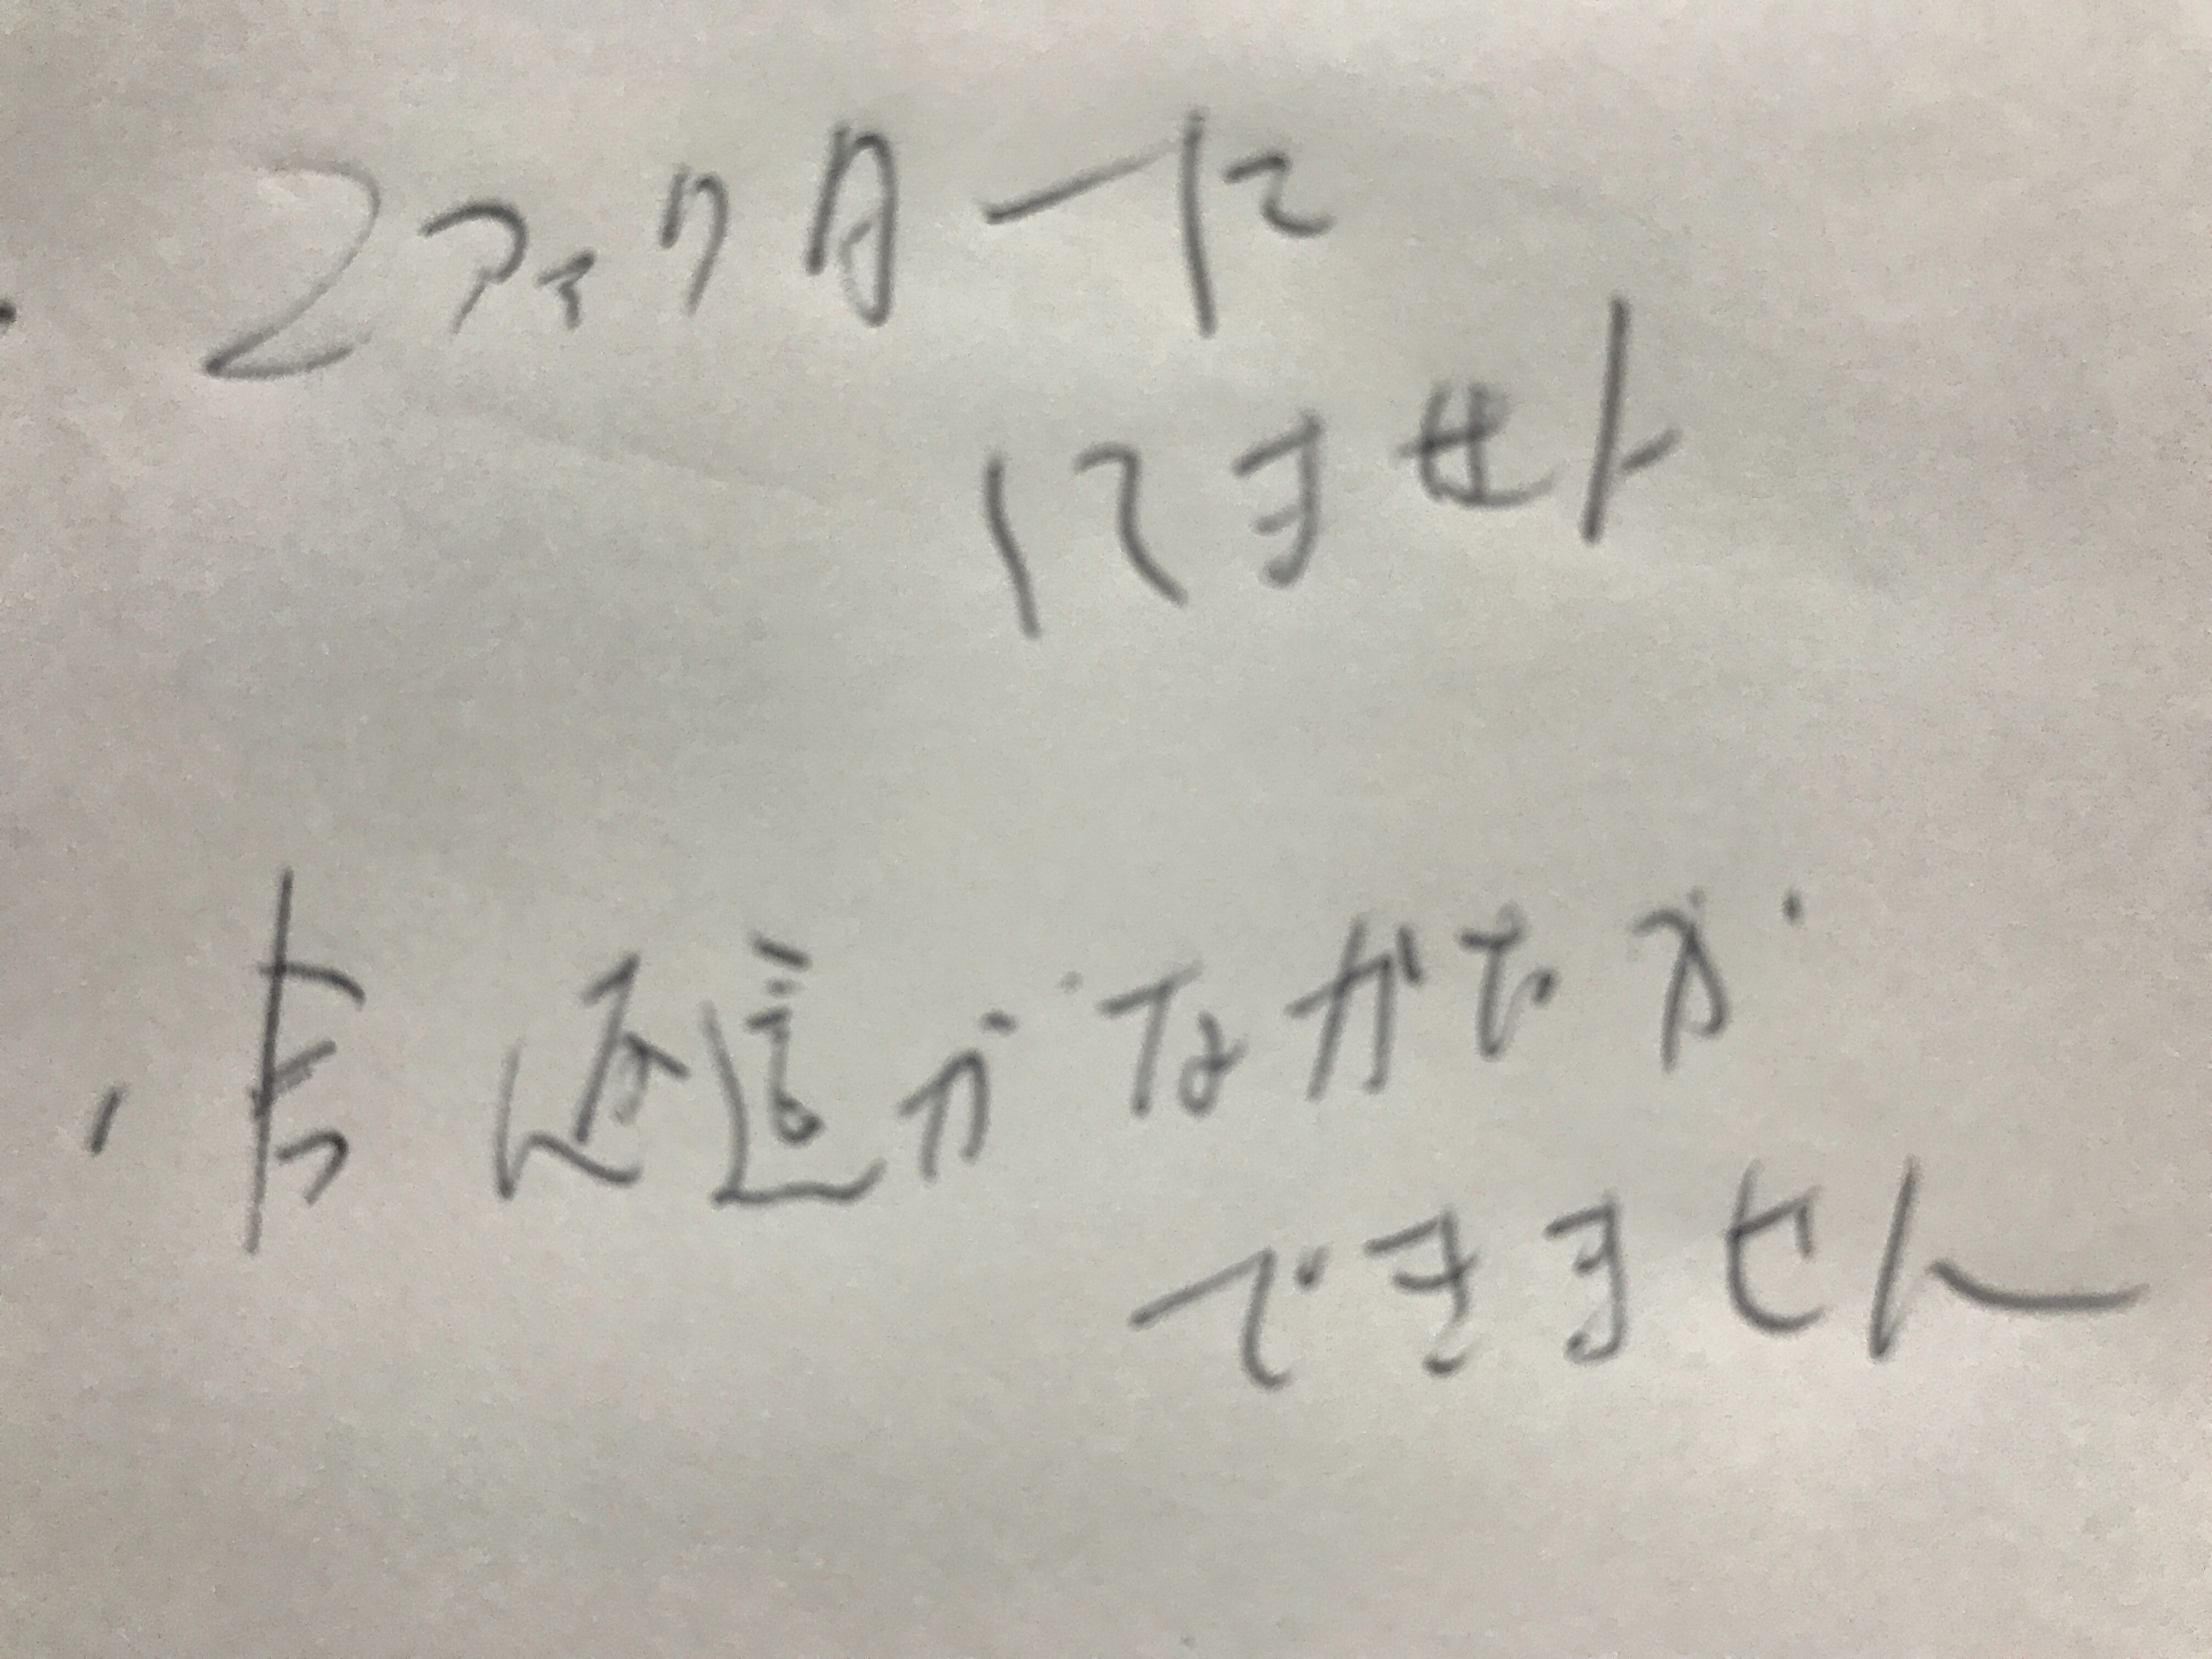 ・2ファクターに
いてません
・点返信がなかなか
できません